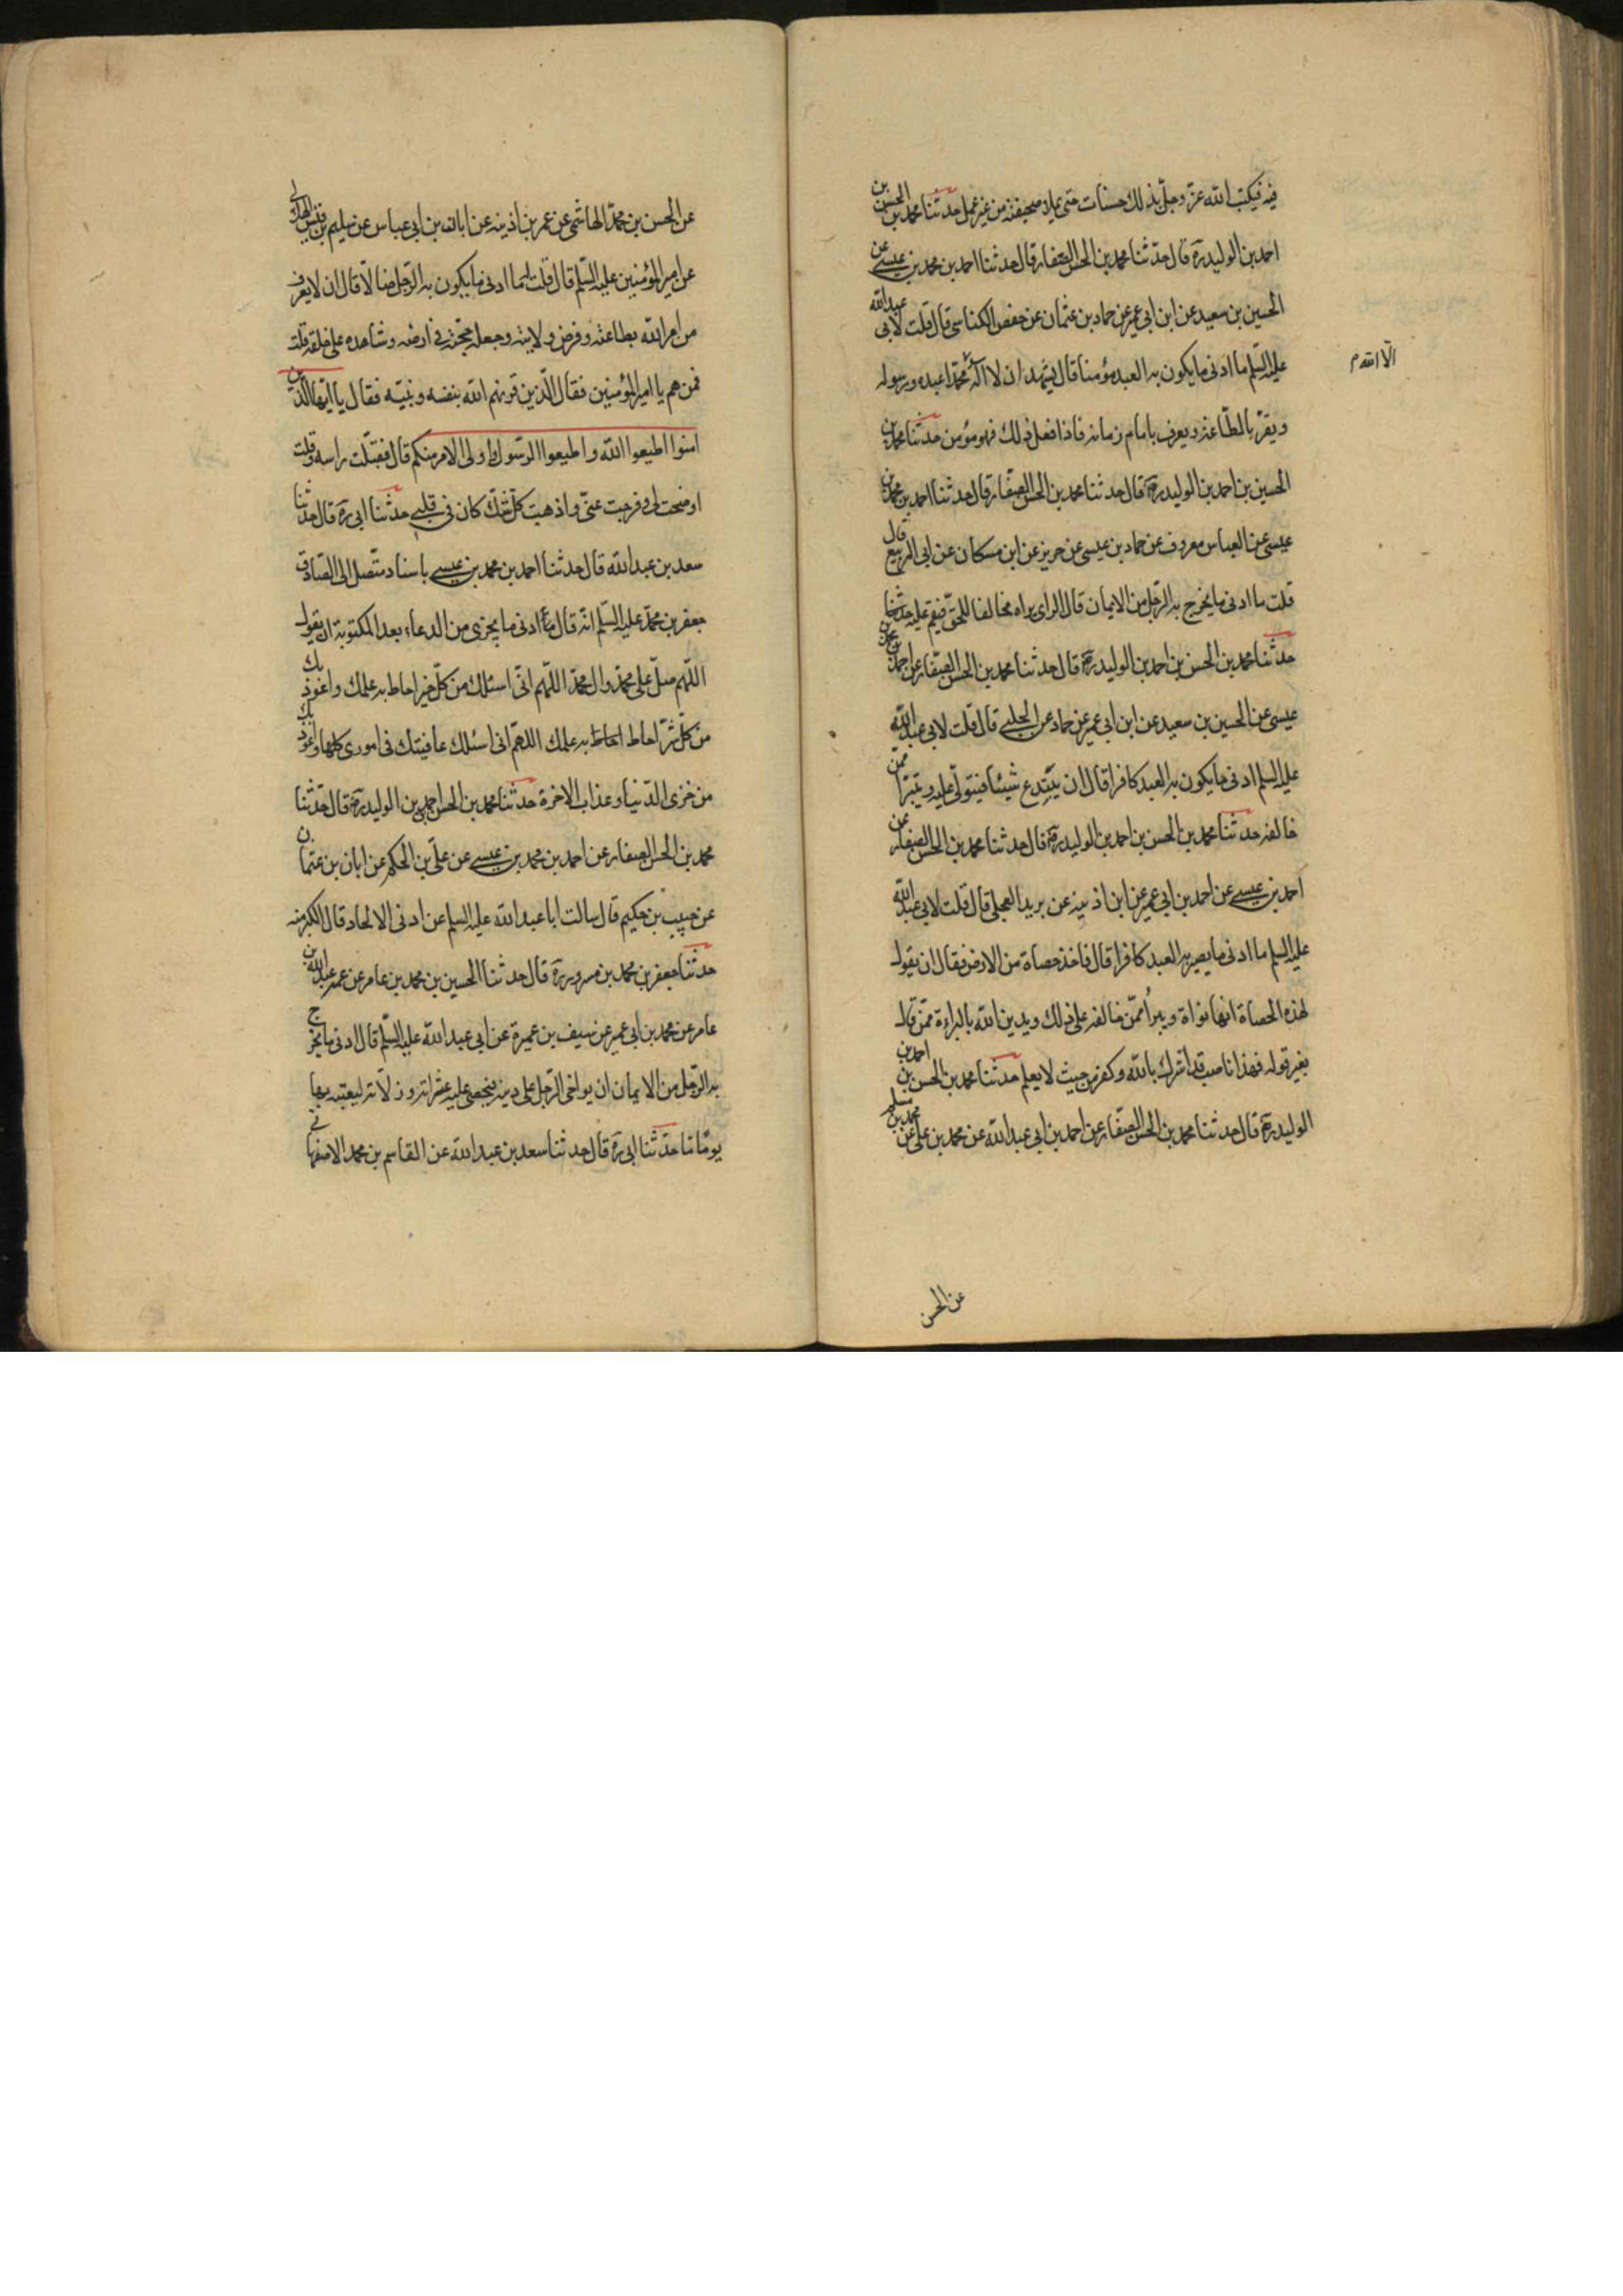 فيه فيكتب الله عزّ وجلّ بذلك حسنات حتى يملا صحيفته من غير عمل حدثنا محمد بن الحسن بن
احمد بن الوليد ره قال حدّثنا محمد بن الحسن الصفار قال حدثنا احمد بن محمد بن عيسى عن
الحسين بن سعيد عن ابن ابي عمير عن حماد بن عثمان عن حفص الكناسى قال قلت لابى عبد الله
عليه السّلم ما ادنى ما يكون به العبد مؤمنا قال يشهد ان لا اله محمّدا عبده ورسوله
الّا الله م
ويقرّ بالطّاعة ويعرف بامام زمانه فاذا فعل ذلك فهو مؤمن حدثنا محمد بن
الحسين بن احمد بن الوليد ره قال حدثنا محمد بن الحسن الصفّار قال حدثنا احمد بن محمد بن
عيسى عن العباس معروف عن حماد بن عيسى عن حريز عن ابن مسكان عن ابى الربيع قال
قلت ما ادنى ما يخرج به الرّجل من الايمان قال الراى يراه مخالفا للحقّ فيقيم عليه حدثنا
حدثنا محمد بن الحسن بن احمد بن الوليد ره قال حدثنا محمد بن الحسن الصفّار عن احمد بن محمد بن
عيسى عن الحسين بن سعيد عن ابن ابى عمير عن حماد عن الحلبى قال قلت لابى عبد الله
عليه السلم ادنى ما يكون به العبد كافرا قال ان يبتدع شيئا فيتولّى عليه ويتبرّا ممّن
خالفه حدثنا محمد بن الحسن بن احمد بن الوليد ره قال حدثنا محمد بن الحسن الصفار عن
احمد بن عيسى عن احمد بن ابى عمير عن ابن اذينه عن بريد العجلى قال قلت لابى عبد الله
عليه السلم ما ادنى ما يصير به العبد كافرا قال فاخذ حصاة من الارض فقال ان يقول
لهذه الحصاة انها نواة ويبرأ ممّن خالفه على ذلك ويدين الله بالبراءة ممّن قال
بغير قوله فهذا ناصب قد اشرك بالله وكفر من حيث لا يعلم حدثنا محمد بن الحسن بن احمد بن
الوليد ره قال حدثنا محمد بن الحسن الصفّار عن احمد بن ابى عبد الله عن محمد بن على عن محمد بن مسلم
عن الحسن
عن الحسن بن محمّد الهاشمى عن عمر بن اذينه عن ابان بن ابى عباس عن سليم بن قيس الهلالى
عن امير المؤمنين عليه السّلم قال قلت له ما ادنى ما يكون به الرّجل ضالّا قال ان لا يعرف
من امر الله بطاعته وفرض ولايته وجعله حجّته فى ارضه وشاهده على خلقه قلت
فمن هم يا امير المؤمنين فقال الّذين قرنهم الله بنفسه ونبيّه فقال يا ايّها الّذين
امنوا اطيعوا الله واطيعوا الرّسول واولى الامر منكم قال فقبّلت راسه وقلت
اوضحت لى وفرجت عنّى واذهبت كلّ شكّ كان فى قلبى حدثنا ابى ره قال حدثنا
سعد بن عبد الله قال حدثنا احمد بن محمد بن عيسى باسناد متّصل الى الصّادق
جعفر بن محمّد عليه السّلم انّه قال ما ادنى ما يجزى من الدعاء بعد المكتوبة ان يقول
اللّهم صلّ على محمّد وال محمّد اللّهم انّى اسئلك من كلّ خير احاط به علمك واعوذ بك
من كلّ شرّ احاط احاط به علمك اللهمّ انى اسئلك عافيتك فى امورى كلها واعوذ بك
من خزى الدّنيا وعذاب الاخرة حدثنا محمد بن الحسن احمد بن الوليد ره قال حدّثنا
محمد بن الحسن الصفار عن احمد بن محمد بن عيسى عن علىّ بن الحكم عن ابان بن عثمان
عن حبيب بن حكيم قال سالت ابا عبد الله عليه السلم عن ادنى الالحاد قال الكبر منه
حدثنا جعفر بن محمد بن مسرور ره قال حدثنا الحسين بن محمد بن عامر عن عمه عبد الله بن
عامر عن محمد بن ابى عمير عن سيف بن عميرة عن ابى عبد الله عليه السّلم قال ادنى ما يخرج
به الرّجل من الايمان ان يواخى الرّجل على دينه فيحصى عليه عثراته وزلّاته ليعيّبه بها
يومّا مّا حدّثنا ابى ره قال حدثنا سعد بن عبد الله عن القاسم بن محمد الاصفهانى